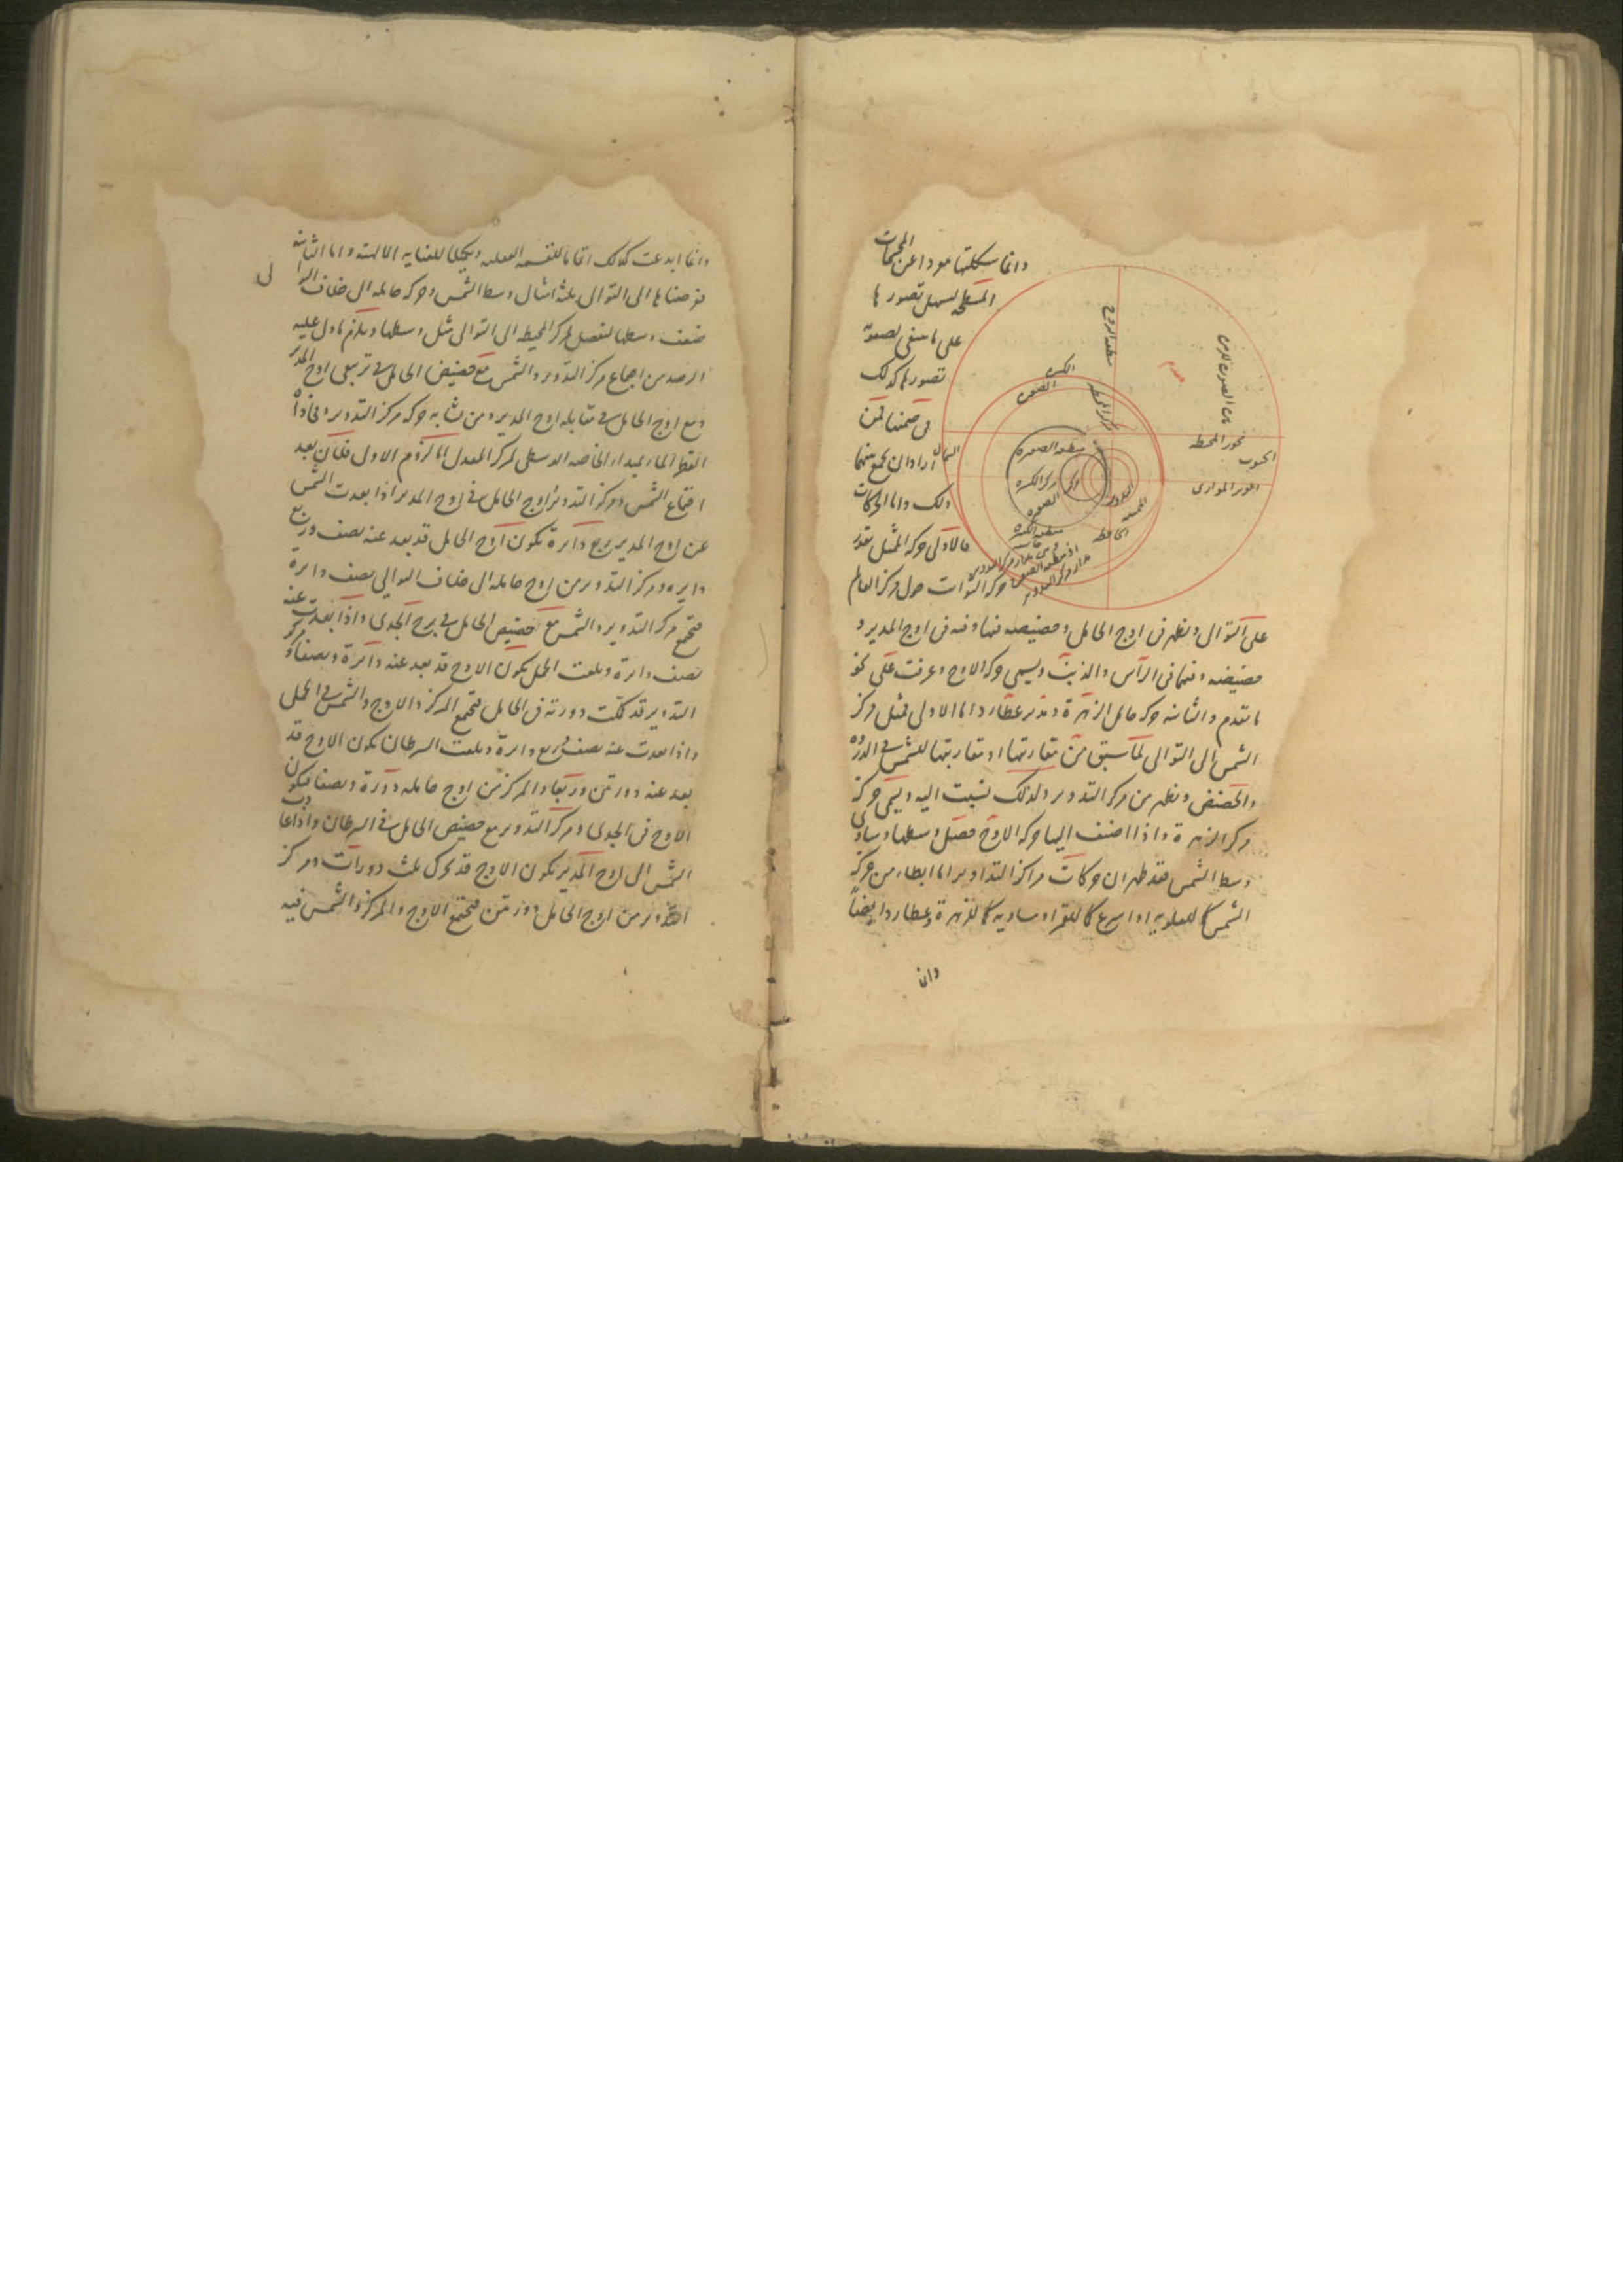 وانما سكلتها مودا عن المجسمات
المسطحه لسهل تصورها
على ما سفى لصعوبه
تصورها كذلك
فى ضمنها لمن
اراد ان يجمع بينهما
ذلك واما الحركات
فالاولى حركة الممثل بقدر
حركة الثوابت حول مركز العالم
على التوالى وتظهر فى اوج الحامل وحضيضه فيها وفيه فى اوج المدير و
حضيضه وفيهما فى الراس والذنب ويسمى حركة الاوج وعرفت على نحو
ما تقدم والثانيه حركة حامل الزهرة ومدير عطارد اما الاولى فمثل مركز
الشمس الى التوالى لما سبق من مقارنتها او مقاربتها للشمس فى الذروه
والحضيض وتظهر من مركز التدوير ولذلك نسبت اليه ويسمى حركة
مركز الزهرة واذا اضيف اليها حركة الاوج حصل وسطها وساوى
وسط الشمس فقد ظهر ان حركات مراكز التداوير اما ابطاء من حركة
الشمس كما للعلويه او اسرع كما للقمر او مساويه كما للزهرة وعطارد ايضاً
وان
سطعه البروج
محور المحيطه
الجنوب
المحور الموازى
الشمال
مركز المحيطه
مركز الكره
التدوير
الحافظه
وانما ابدعت كذلك اتماما للقسمه العقليه وتكميلا للعنايه الالهيه واما الثانيه
فرضناها الى التوالى ثلثة امثال وسط الشمس وحركة حامله الى خلاف التوالى
ضعف وسطها لتفضل لمركز المحيطه الى التوالى مثل وسطها ويلزم ما دل عليه
الرصد من اجماع مركز التدوير والشمس مع حضيض الحامل فى تربيعى اوج المدير
ومع اوج الحامل فى مقابله اوج المدير ومن تشابه حركة مركز التدوير ومحاذاة
القطر المار بمبداء الخاصه الوسطى لمركز المعدل اما لزوم الاول فلان بعد
اجتماع الشمس ومركز التدوير واوج الحامل فى اوج المدير اذا بعدت الشمس
عن اوج المدير ربع دائرة يكون اوج الحامل قد بعد عنه نصف وربع
دايره ومركز التدوير من اوج حامله الى خلاف التوالى نصف دايرة
فيجتمع مركز التدوير والشمس مع حضيض الحامل فى برج الجدى واذا بعدت عنه
نصف دايرة وبلغت الحمل يكون الاوج قد بعد عنه دائرة ونصفا ومركز
التدوير قد تمت دورته فى الحامل فيجتمع المركز والاوج والشمس فى الحمل
واذا بعدت عنه نصف وربع دايرة وبلغت السرطان يكون الاوج قد
بعد عنه دورتين وربعا والمركز من اوج حامله دورة ونصفا فيكون
الاوج فى الجدى ومركز التدوير مع حضيض الحامل فى السرطان واذا عادت
الشمس الى اوج المدير يكون الاوج قد تحرك ثلث دورات ومركز
التدوير من اوج الحامل دورتين فيجتمع الاوج والمركز والشمس فيه